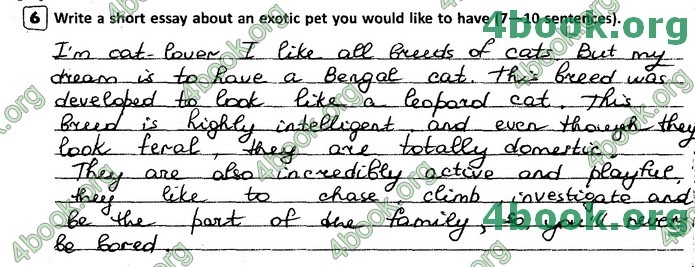 6 Write a short essay about an exotic pet you would like to have (7—10 sentences).
I'm cat-lover. I like all breeds of cats. But my
dream is to have a Bengal cat. This breed was
developed to look like a leopard cat. This
breed is highly intelligent and even though they
look feral, they are totally domestic.
They are also incredibly active and playful,
they like to chase, climb, investigate and
be the part of the family, so you'll never
be bored.
4book.org
4book.org
4book.org
4book.org
4book.org
4book.org
4book.org